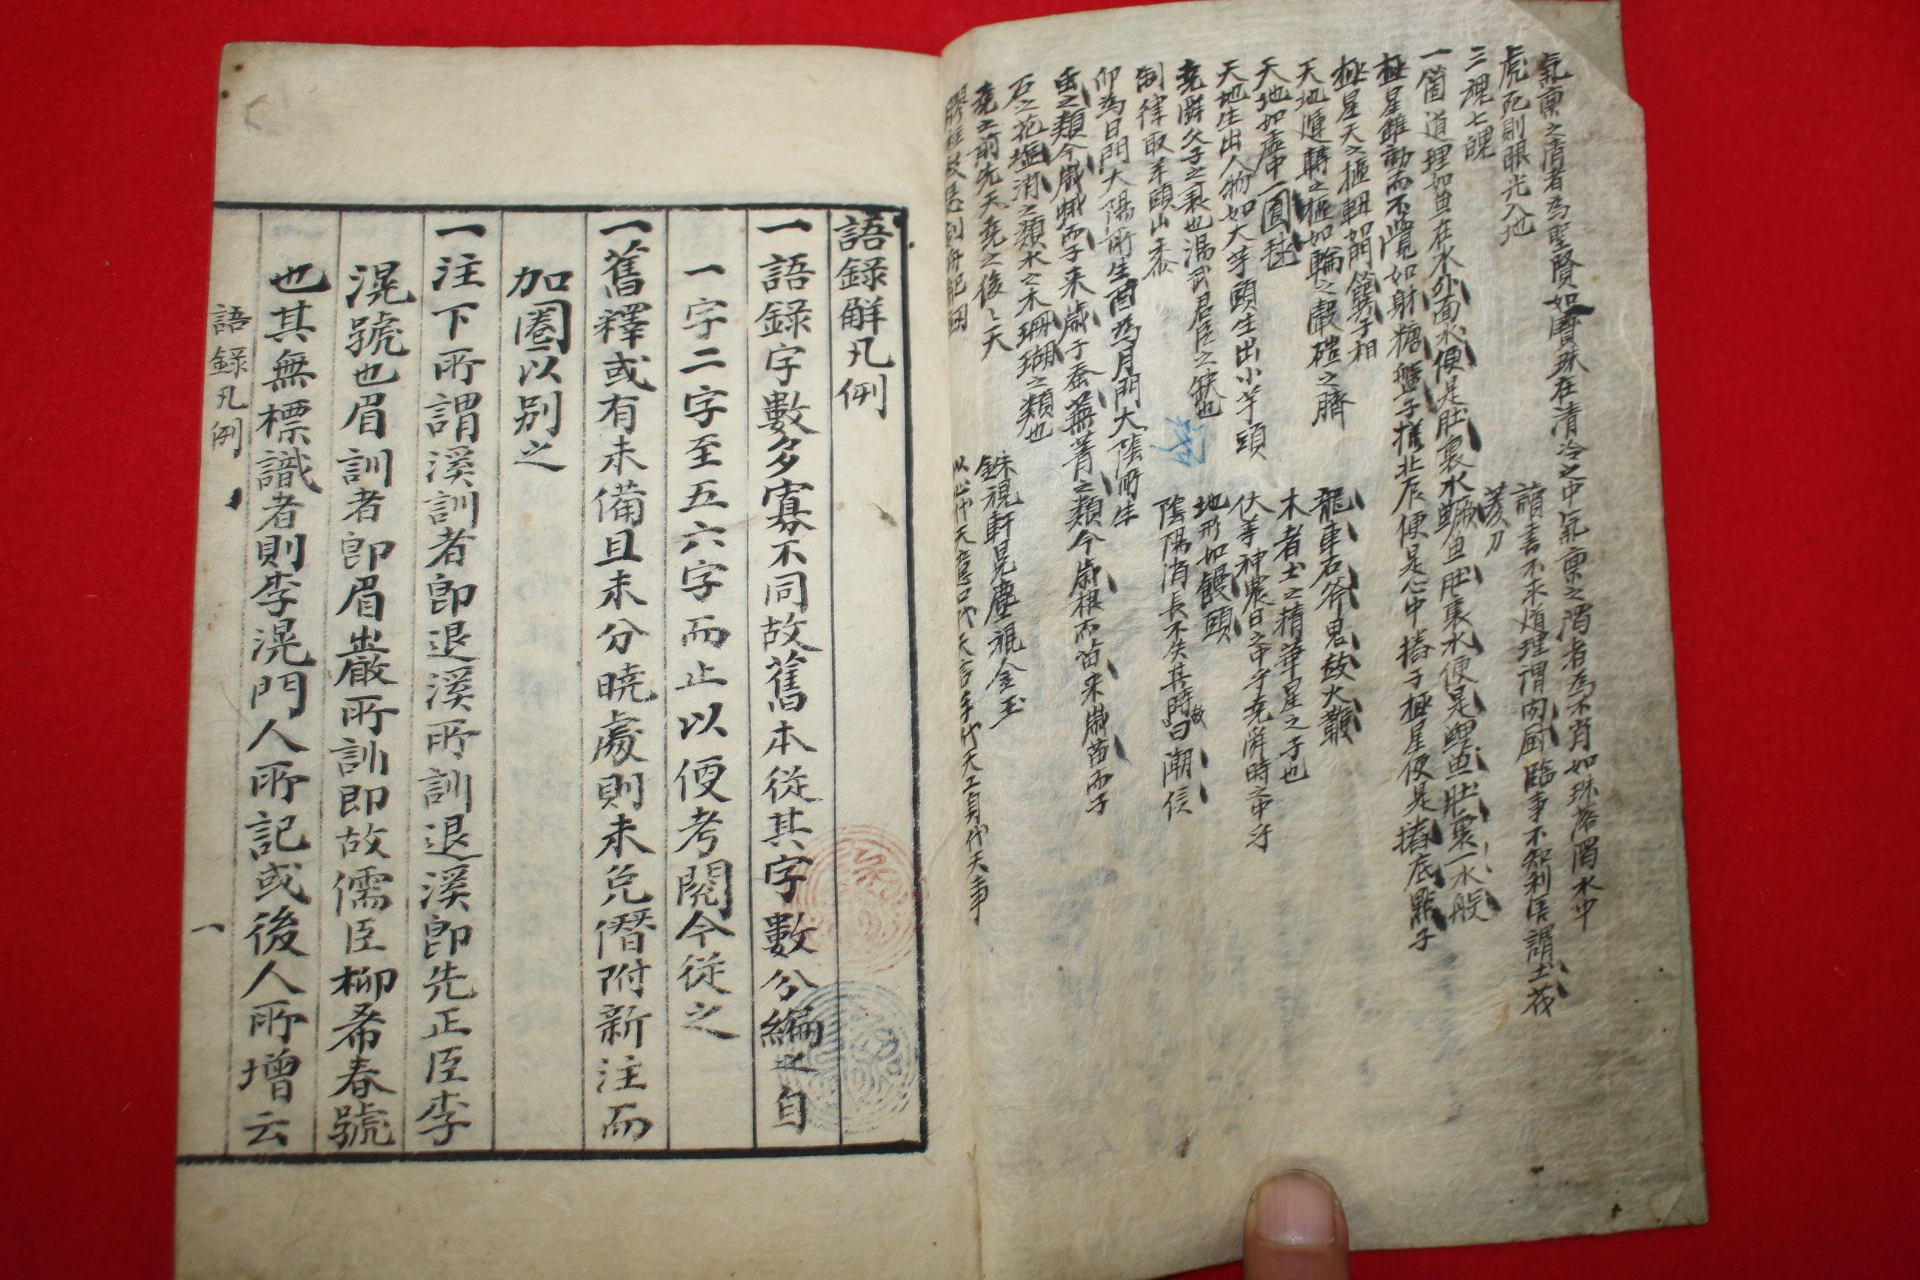 氣稟之清者爲聖賢如寶珠在清冷之中氣稟之濁者爲不肖如珠落濁水中
虎死則眼光入地
讀書不求煩理謂內厨臨事不知利害謂
三魂七魄
一箇道理如魚在水外面水便是肚裏水鱖魚肚裏水便是鯉魚肚裏一水般
極星雖動而不覺如射糖盤子樣北辰便是心中樁子極星便是樁底點子
極星天之樞紐如門簨子相
天地運轉之樞如輪之轂磑之臍
龍車石斧鬼鼓火鞭
天地如虛中一圓毬
木者土之精華星之子也
天地生出人物如大芋頭生出小芋頭
堯舜父子之衰也湯武君臣之缺也
地形如饅頭
制律取羊頭山黍
陰陽消長不失其時故曰潮信
卯爲日門大陽所生酉爲月門大陰所生
虫之類今歲蛾而子來歲子蚕蕪菁之類今歲根而苗來歲苗而子
石之花塩消之類水之木珊瑚之類也
銖視軒冕塵視金玉
堯之前先天堯之後後天
以心代天意口代天言手代天工身代天事
語錄解凡例
一語錄字數多寡不同故舊本從其字數分編之自
一字二字至五六字而止以便考閱今從之
一舊釋或有未備且未分曉處則未免僭附新注而
加圈以別之
一注下所謂溪訓者郎退溪所訓退溪郎先正臣李
滉號也眉訓者郎眉巖所訓即故儒臣柳希春號
也其無標識者則李滉門人所記或後人所增云
語錄凡例
一